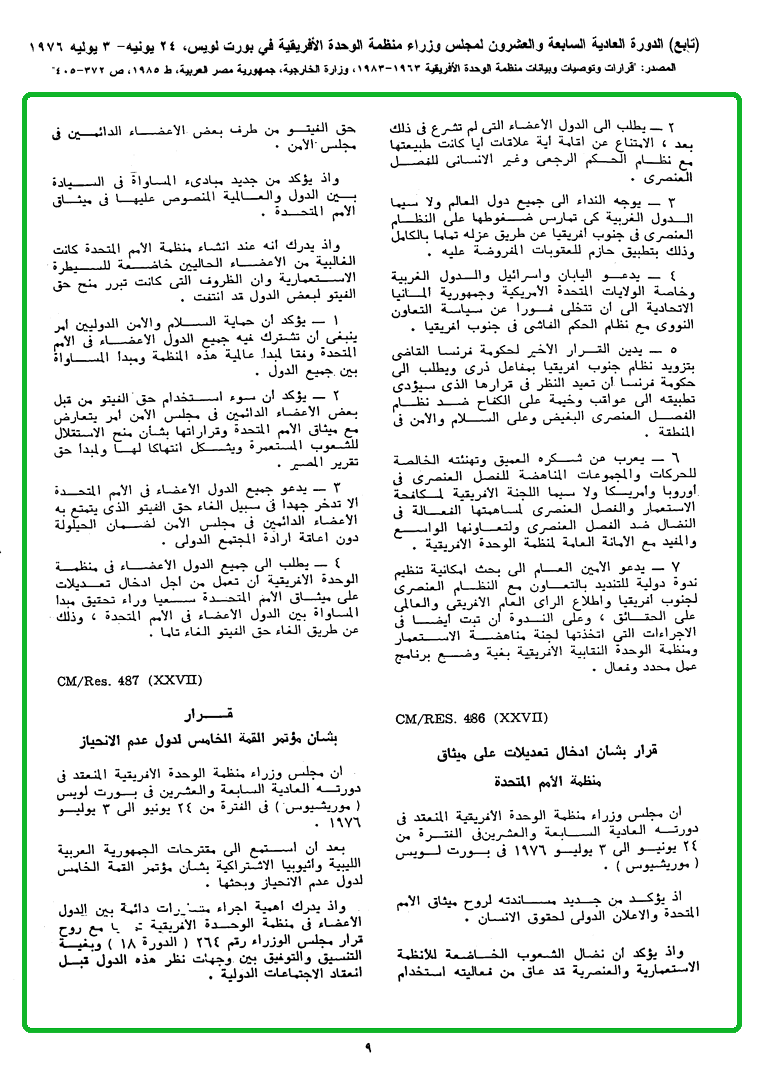 (تابع) الدورة العادية السابعة والعشرون لمجلس وزراء منظمة الوحدة الأفريقية في بورت لويس، ٢٤ يونيه- ٣ يوليه ١٩٧٦
المصدر: "قرارات وتوصيات وبيانات منظمة الوحدة الأفريقية ١٩٦٣-١٩٨٣، وزارة الخارجية، جمهورية مصر العربية، ط ١٩٨٥، ص ٣٧٢-٤٠٥"
٢ — يطلب الى الدول الاعضاء التى لم تشرع فى ذلك
بعد ، الامتناع عن اقامة أية علاقات ايا كانت طبيعتها
مع نظام الحكم الرجعى وغير الانسانى للفصل
العنصرى .
٣ — يوجه النداء الى جميع دول العالم ولا سيما
الدول الغربية كى تمارس ضغوطها على النظام
العنصرى فى جنوب أفريقيا عن طريق عزله تماما بالكامل
وذلك بتطبيق حازم للعقوبات المفروضة عليه .
٤ — يدعو اليابان واسرائيل والدول الغربية
وخاصة الولايات المتحدة الأمريكية وجمهورية المانيا
الاتحادية الى أن تتخلى فورا عن سياسة التعاون
النووى مع نظام الحكم الفاشى فى جنوب افريقيا .
٥ — يدين القرار الأخير لحكومة فرنسا القاضى
بتزويد نظام جنوب افريقيا بمفاعل ذرى ويطلب الى
حكومة فرنسا ان تعيد النظر فى قرارها الذى سيؤدى
تطبيقه الى عواقب وخيمة على الكفاح ضد نظام
الفصل العنصرى البغيض وعلى السلام والامن فى
المنطقة .
٦ — يعرب عن شكره العميق وتهنئته الخالصة
للحركات والمجموعات المناهضة للفصل العنصرى فى
أوروبا وأمريكا ولا سيما اللجنة الأفريقية لمكافحة
الاستعمار والفصل العنصرى لمساهمتها الفعالة فى
النضال ضد الفصل العنصرى ولتعاونها الواسع
والمفيد مع الامانة العامة لمنظمة الوحدة الأفريقية .
٧ — يدعو الأمين العام الى بحث امكانية تنظيم
ندوة دولية للتنديد بالتعاون مع النظام العنصرى
لجنوب أفريقيا واطلاع الرأى العام الأفريقى والعالمى
على الحقائق ، وعلى الندوة أن تبت أيضا فى
الاجراءات التى اتخذتها لجنة مناهضة الاستعمار
ومنظمة الوحدة النقابية الأفريقية بغية وضع برنامج
عمل محدد وفعال .
CM/RES. 486 (XXVII)
قرار بشأن ادخال تعديلات على ميثاق
منظمة الأمم المتحدة
ان مجلس وزراء منظمة الوحدة الأفريقية المنعقد فى
دورته العادية السابعة والعشرين فى الفترة من
٢٤ يونيو الى ٣ يوليو ١٩٧٦ فى بورت لويس
( موريشيوس ) .
اذ يؤكد من جديد مساندته لروح ميثاق الأمم
المتحدة والاعلان الدولى لحقوق الانسان .
واذ يؤكد أن نضال الشعوب الخاضعة للأنظمة
الاستعمارية والعنصرية قد عاق من فعاليته استخدام
حق الفيتو من طرف بعض الاعضاء الدائمين فى
مجلس الأمن .
واذ يؤكد من جديد مبادىء المساواة فى السيادة
بين الدول والعالمية المنصوص عليها فى ميثاق
الأمم المتحدة .
واذ يدرك انه عند انشاء منظمة الأمم المتحدة كانت
الغالبية من الأعضاء الحاليين خاضعة للسيطرة
الاستعمارية وان الظروف التى كانت تبرر منح حق
الفيتو لبعض الدول قد انتفت .
١ — يؤكد أن حماية السلام والأمن الدوليين أمر
ينبغى ان تشترك فيه جميع الدول الأعضاء فى الأمم
المتحدة وفقا لمبدأ عالمية هذه المنظمة ومبدأ المساواة
بين جميع الدول .
٢ — يؤكد أن سوء استخدام حق الفيتو من قبل
بعض الأعضاء الدائمين فى مجلس الأمن أمر يتعارض
مع ميثاق الأمم المتحدة وقراراتها بشأن منح الاستقلال
للشعوب المستعمرة ويشكل انتهاكا لها ولمبدأ حق
تقرير المصير .
٣ — يدعو جميع الدول الأعضاء فى الأمم المتحدة
ألا تدخر جهدا فى سبيل الغاء حق الفيتو الذى يتمتع به
الاعضاء الدائمين فى مجلس الأمن لضمان الحيلولة
دون اعاقة ارادة المجتمع الدولى .
٤ — يطلب الى جميع الدول الأعضاء فى منظمة
الوحدة الأفريقية أن تعمل من أجل ادخال تعديلات
على ميثاق الأمم المتحدة سعيا وراء تحقيق مبدأ
المساواة بين الدول الأعضاء فى الأمم المتحدة ، وذلك
عن طريق الغاء حق الفيتو الغاء تاما .
CM/Res. 487 (XXVII)
قرار
بشأن مؤتمر القمة الخامس لدول عدم الانحياز
ان مجلس وزراء منظمة الوحدة الأفريقية المنعقد فى
دورته العادية السابعة والعشرين فى بورت لويس
( موريشيوس ) فى الفترة من ٢٤ يونيو الى ٣ يوليو
١٩٧٦ .
بعد أن استمع الى مقترحات الجمهورية العربية
الليبية وأثيوبيا الاشتراكية بشأن مؤتمر القمة الخامس
لدول عدم الانحياز وبحثها .
واذ يدرك أهمية اجراء دائمة بين الدول
الأعضاء فى منظمة الوحدة الأفريقية مع روح
قرار مجلس الوزراء رقم ٢٦٤ ( الدورة ١٨ ) وبغية
التنسيق والتوفيق بين وجهات نظر هذه الدول قبل
انعقاد الاجتماعات الدولية .
٩